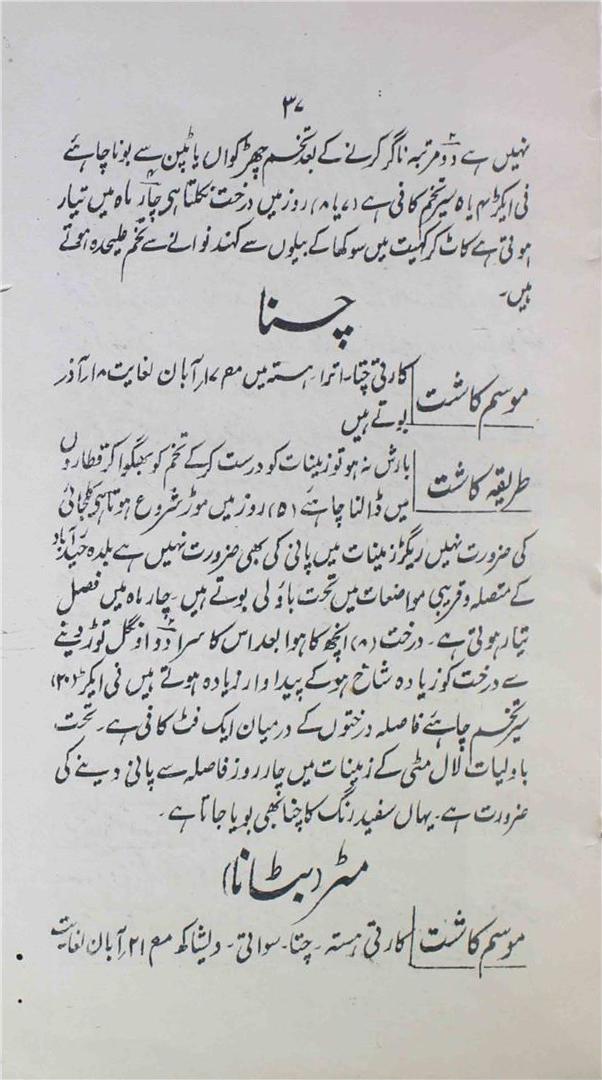 ۳۷
نہیں ہے دو ۲ مرتبہ ناگر کرنے کے بعد تخم چھڑکواں یا ٹپن سے بونا چاہئے
فی ایکڑ ۴ یا ۵ سیر تخم کافی ہے (۷ یا ۸) روز میں درخت نکلتا ہی چار ۴ ماہ میں تیار
ہوتی ہے کاٹ کر کھیت میں سوکھا کے بیلوں سے کہند نوانے سے تخم علیحدہ ہوتے
ہیں۔
چنا
موسم کاشت کارتی چتا۔ انرا۔ ہستہ میں م ۱۷؍ آبان لغایت ۱۸؍ آذر
بوتے ہیں
طریقہ کاشت بارش نہ ہو تو زمینات کو درست کر کے تخم کو بھگوا کر قطاروں
میں ڈالنا چاہئے (۵) روز میں موڑ شروع ہوتا ہی کلجائی
کی ضرورت نہیں ریگڑ زمینات میں پانی کی بھی ضرورت نہیں ہے بلدہ حیدرآباد
کے متصلہ و قریبی مواضعات میں تحت باؤلی بوتے ہیں۔ چار ۴ ماہ میں فصل
تیار ہوتی ہے۔ درخت (۸) انچھ کا ہوا بعد اس کا سرا دو ۲ اونگل توڑ دینے
سے درخت کو زیادہ شاخ ہو کے پیداوار زیادہ ہوتے ہیں فی ایکڑ (۲۰)
سیر تخم چاہئے فاصلہ درختوں کے درمیان ایک فٹ کافی ہے۔ تحت
باولیات لال مٹی کے زمینات میں چار روز فاصلہ سے پانی دینے کی
ضرورت ہے۔ یہاں سفید رنگ کا چنا بھی بویا جاتا ہے۔
مٹر (بٹانا)
موسم کاشت کارتی ہستہ۔ چتا۔ سواتی۔ ویشاکھ م ۲۱؍ آبان لغایت